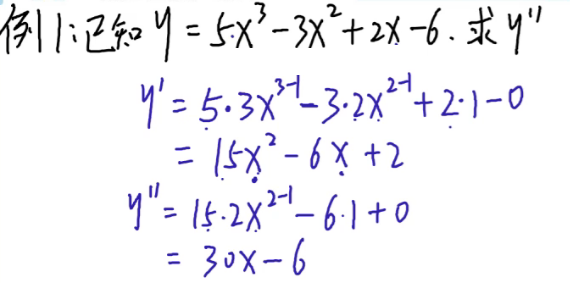 例1:已知 y = 5x³ - 3x² + 2x - 6. 求 y''
y' = 5·3x³⁻¹ - 3·2x²⁻¹ + 2·1 - 0
= 15x² - 6x + 2
y'' = 15·2x²⁻¹ - 6·1 + 0
= 30x - 6